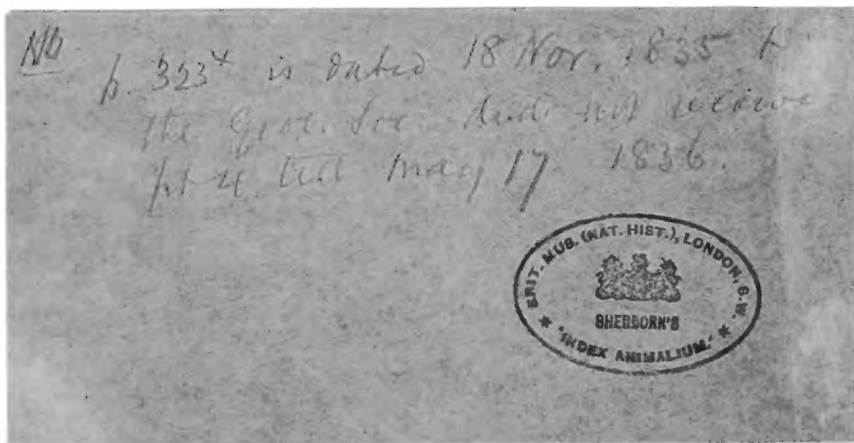 NB
p. 323* is dated 18 Nov. 1835 &
the Geol. Soc. did not receive
pt 4 till May 17 1836.
BRIT. MUS. (NAT. HIST.), LONDON, S.W.
SHERBORN'S
* "INDEX ANIMALIUM." *